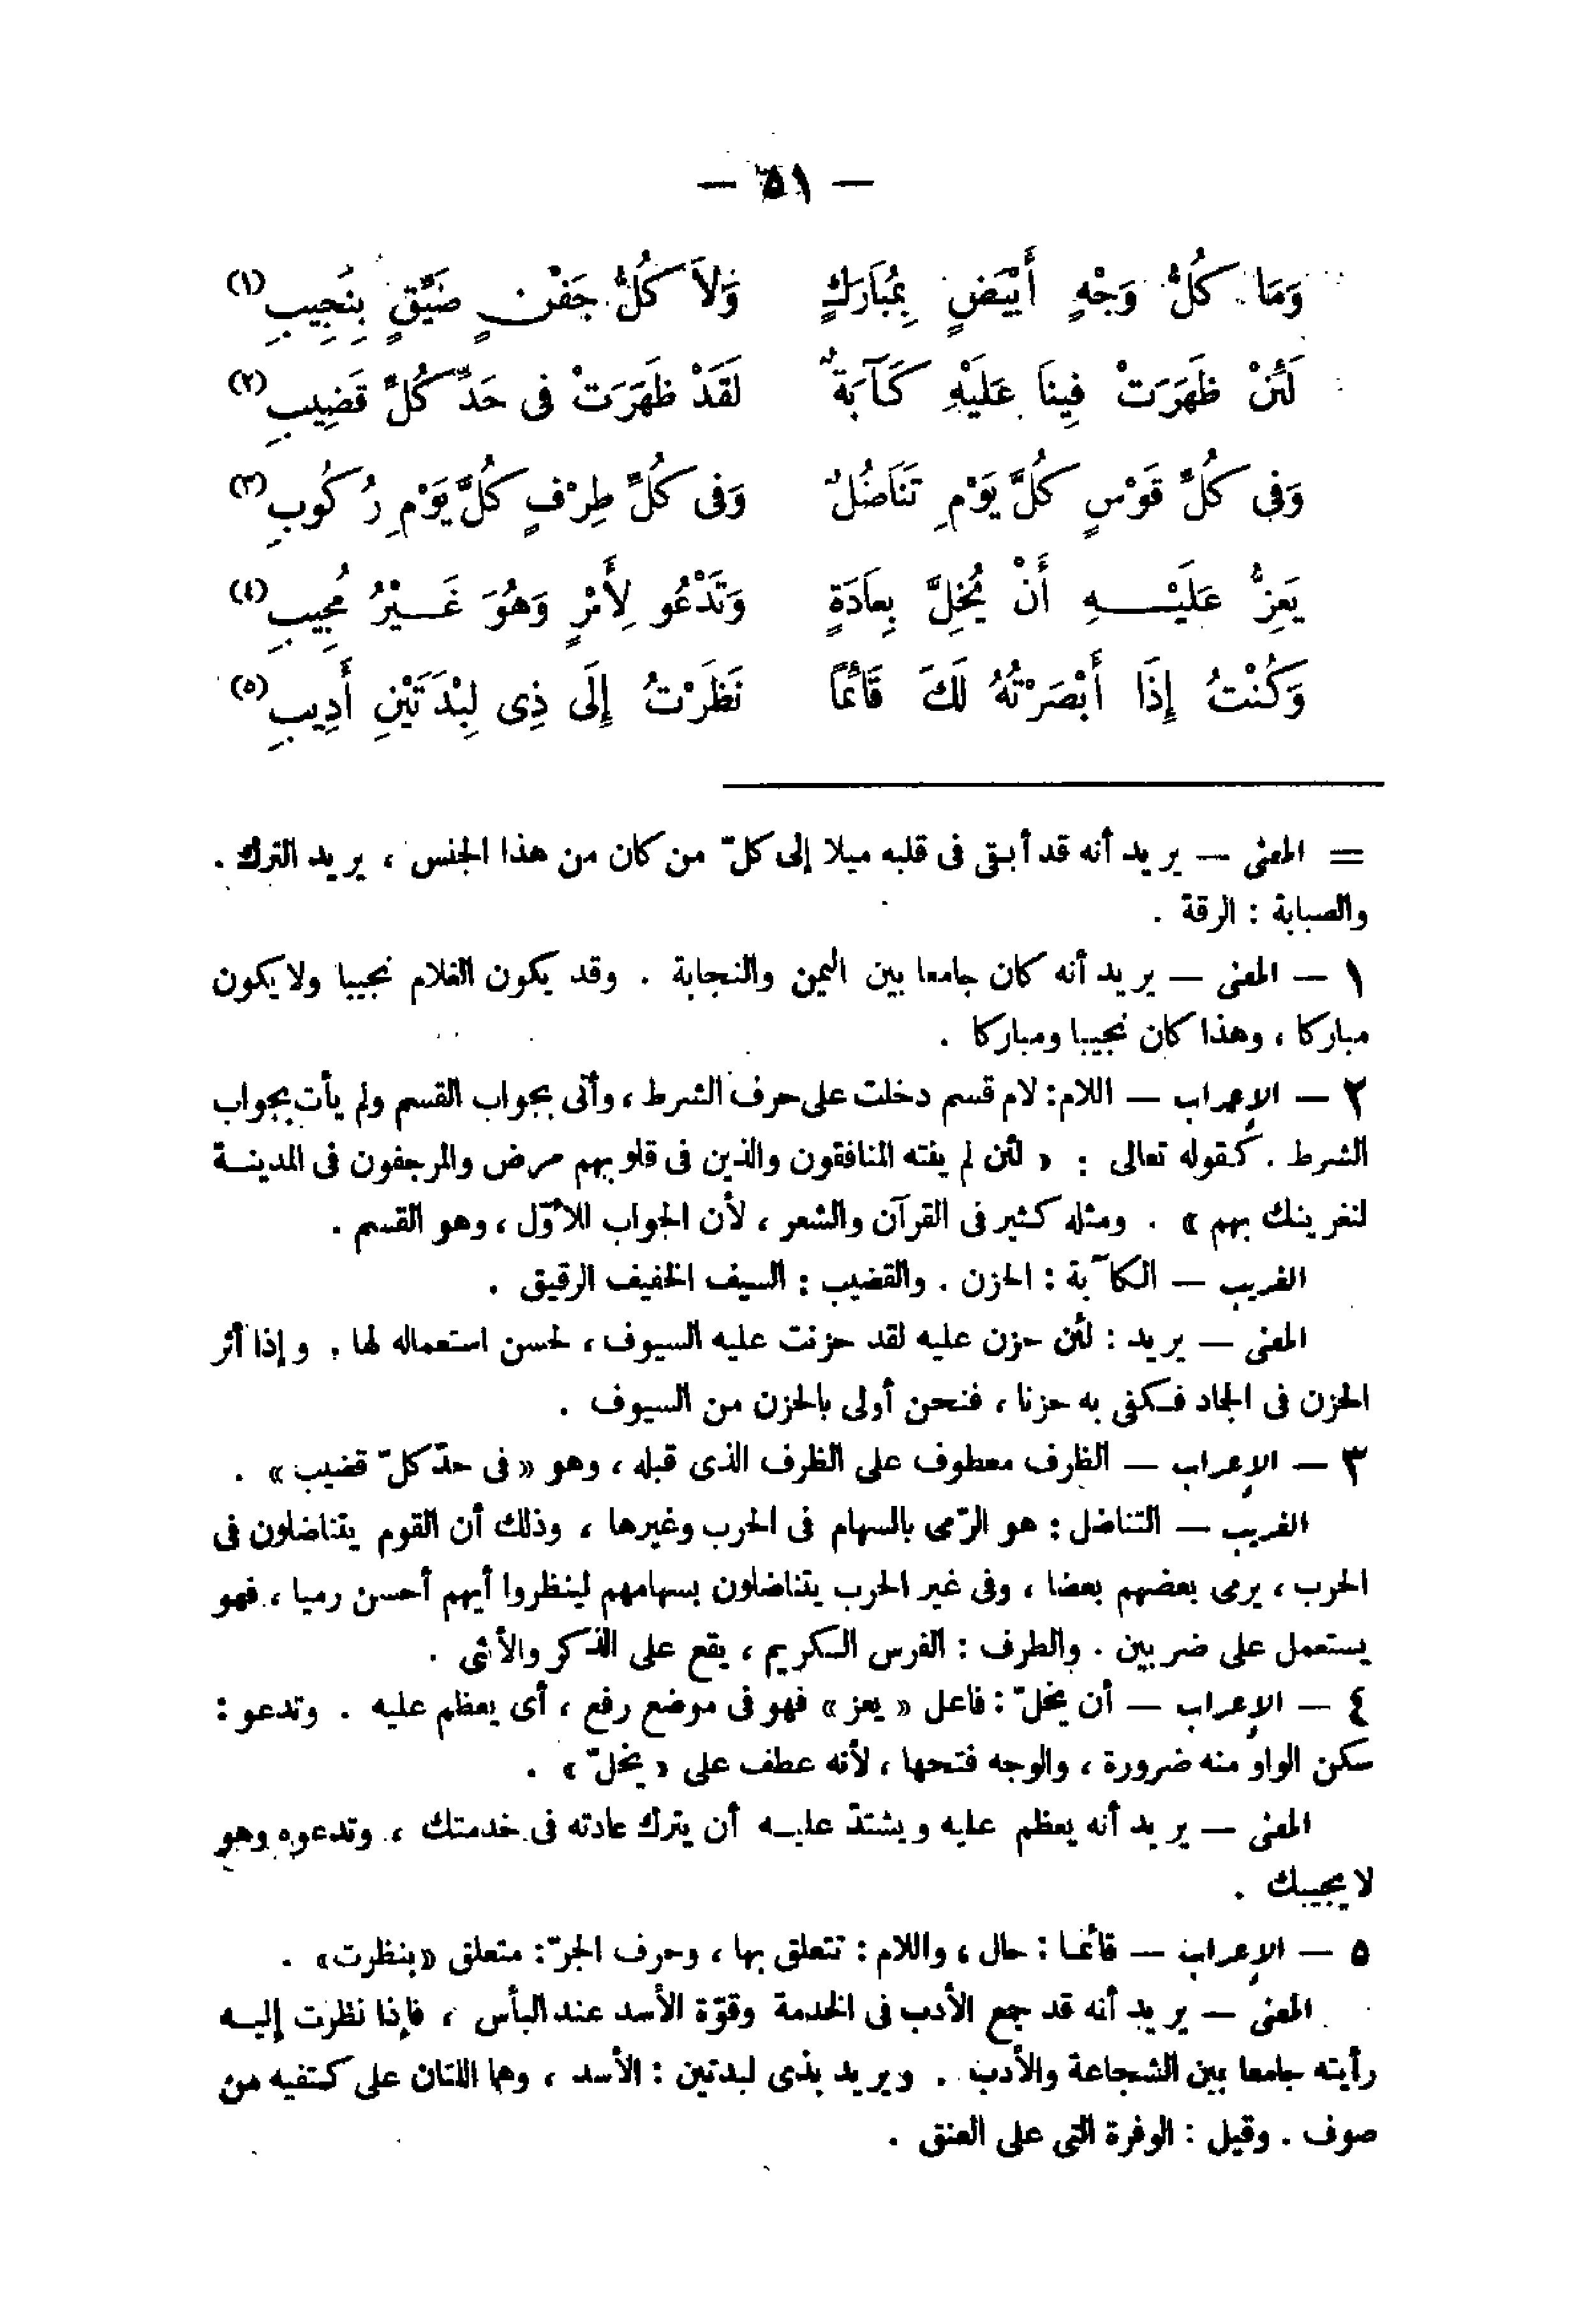 — ٥١ —
وَمَا كُلُّ وَجْهٍ أَبْيَضٍ بِمُبَارَكٍ وَلاَ كُلُّ جَفْنٍ ضَيِّقٍ بِنَجِيبِ (١)
لَئِنْ ظَهَرَتْ فِينَا عَلَيْهِ كَآبَةٌ لَقَدْ ظَهَرَتْ فى حَدِّ كُلِّ قَضِيبِ (٢)
وَفى كُلِّ قَوْسٍ كُلَّ يَوْمٍ تَنَاضُلٌ وَفى كُلِّ طِرْفٍ كُلَّ يَوْمٍ رُكُوبِ (٣)
يَعِزُّ عَلَيْـــهِ أَنْ يُخِلَّ بِعَادَةٍ وَتَدْعُو لِأَمْرٍ وَهُوَ غَـيْرُ مُجِيبِ (٤)
وَكُنْتُ إِذَا أَبْصَرْتُهُ لَكَ قَائمًا نَظَرْتُ إِلَى ذِى لِبْدَتَيْنِ أَدِيبِ (٥)
= المعنى — يريد أنه قد أبقى فى قلبه ميلا إلى كلّ من كان من هذا الجنس ، يريد الترك .
والصبابة : الرقة .
١ — المعنى — يريد أنه كان جامعا بين اليمن والنجابة . وقد يكون الغلام نجيبا ولا يكون
مباركا ، وهذا كان نجيبا ومباركا .
٢ — الإعراب — اللام: لام قسم دخلت على حرف الشرط ، وأتى بجواب القسم ولم يأت بجواب
الشرط . كقوله تعالى : « لئن لم ينته المنافقون والذين فى قلوبهم مرض والمرجفون فى المدينــة
لنغرينك بهم » . ومثله كثير فى القرآن والشعر ، لأن الجواب للأوّل ، وهو القسم .
الغريب — الكآبة : الحزن . والقضيب : السيف الخفيف الرقيق .
المعنى — يريد : لئن حزن عليه لقد حزنت عليه السيوف ، لحسن استعماله لها . وإذا أثر
الحزن فى الجاد فكفى به حزنا ، فنحن أولى بالحزن من السيوف .
٣ — الإعراب — الظرف معطوف على الظرف الذى قبله ، وهو « فى حدّ كلّ قضيب » .
الغريب — التناضل : هو الرّمى بالسهام فى الحرب وغيرها ، وذلك أن القوم يتناضلون فى
الحرب ، يرمى بعضهم بعضا ، وفى غير الحرب يتناضلون بسهامهم لينظروا أيهم أحسن رميا ، فهو
يستعمل على ضربين . والطرف : الفرس الكريم ، يقع على الذكر والأنثى .
٤ — الإعراب — أن يخلّ : فاعل « يعز » فهو فى موضع رفع ، أى يعظم عليه . وتدعو :
سكن الواو منه ضرورة ، والوجه فتحها ، لأنه عطف على « يخلّ » .
المعنى — يريد أنه يعظم عليه ويشتدّ عليــه أن يترك عادته فى خدمتك ، وتدعوه وهو
لا يجيبك .
٥ — الإعراب — قائمـا : حال ، واللام : تتعلق بها ، وحرف الجرّ : متعلق « بنظرت » .
المعنى — يريد أنه قد جمع الأدب فى الخدمة وقوّة الأسد عند البأس ، فإذا نظرت إليــه
رأيته جامعا بين الشجاعة والأدب . ويريد بذى لبدتين : الأسد ، وهما اللتان على كتفيه من
صوف . وقيل : الوفرة التى على العنق .